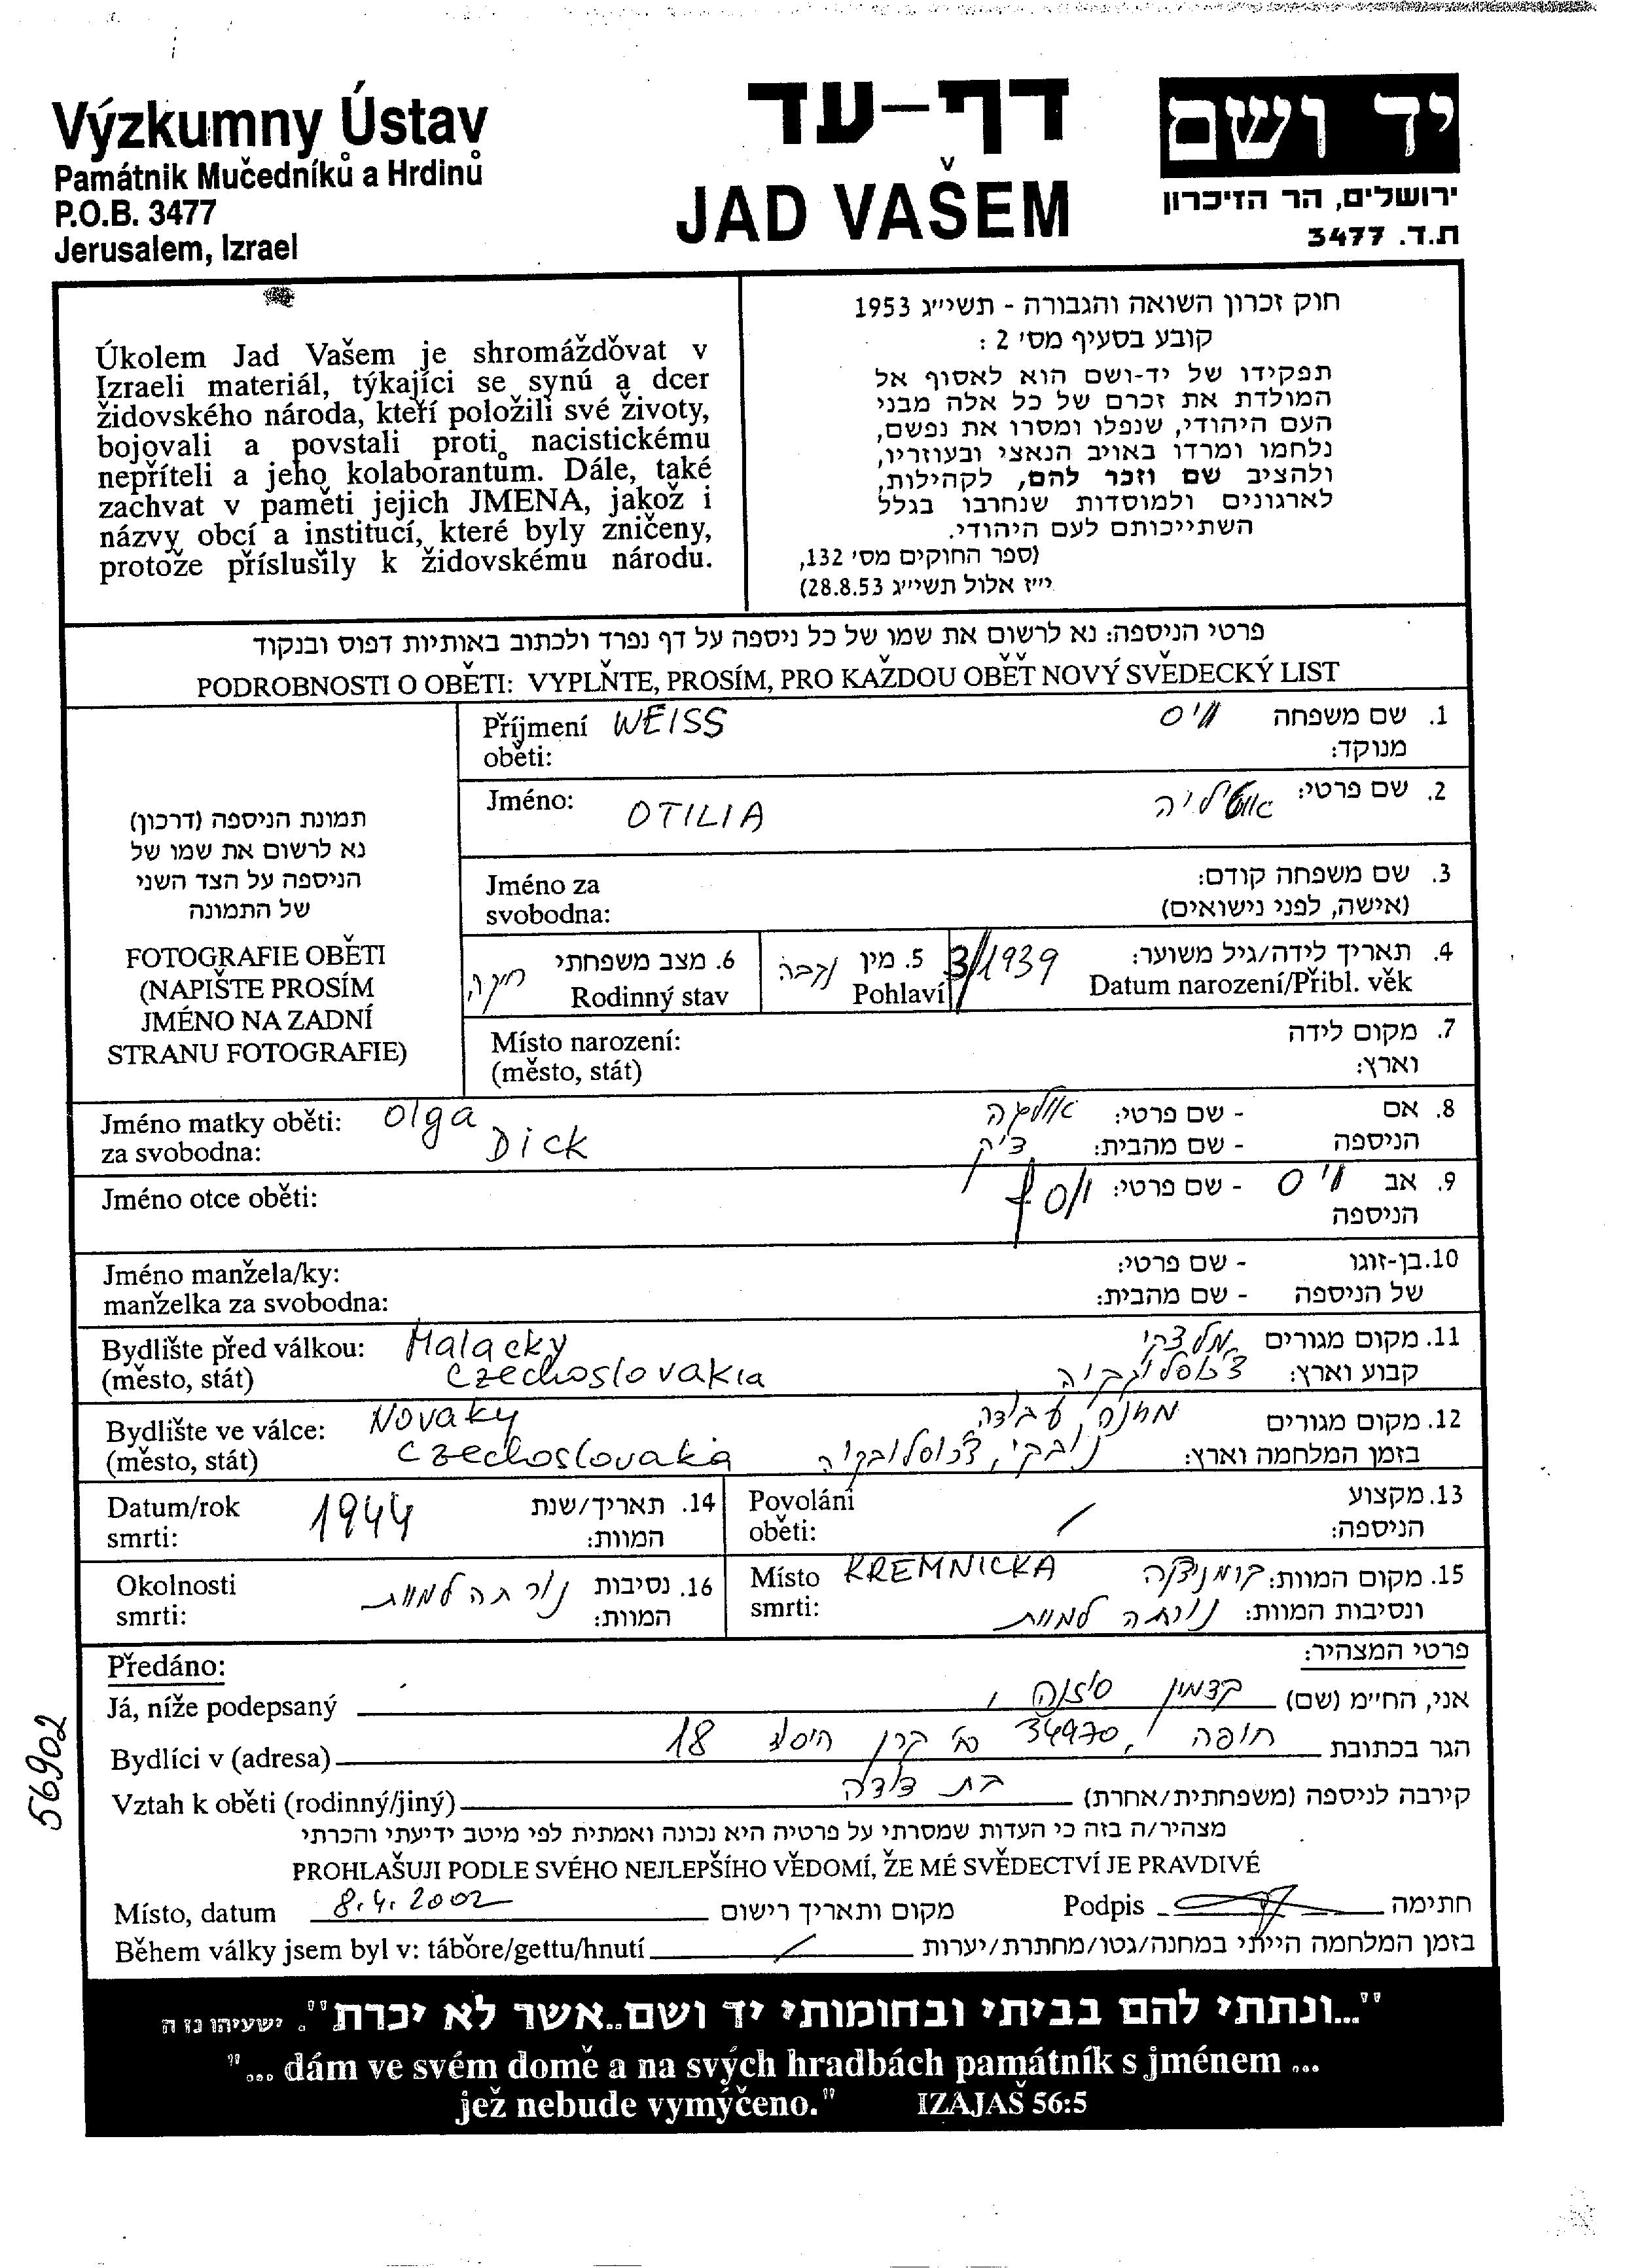 Výzkumny Ústav
Památnik Mučedníků a Hrdinů
P.O.B. 3477
Jerusalem, Izrael
דף-עד
JAD VAŠEM
יד ושם
ירושלים, הר הזיכרון
ת.ד. 3477
Úkolem Jad Vašem je shromáždovat v
Izraeli materiál, týkajíci se synú a dcer
židovského národa, kteří položili své životy,
bojovali a povstali proti nacistickému
nepříteli a jeho kolaborantům. Dále, také
zachvat v paměti jejich JMENA, jakož i
názvy obcí a institucí, které byly zničeny,
protože příslušily k židovskému národu.
חוק זכרון השואה והגבורה - תשי״ג 1953
קובע בסעיף מס׳ 2 :
תפקידו של יד-ושם הוא לאסוף אל
המולדת את זכרם של כל אלה מבני
העם היהודי, שנפלו ומסרו את נפשם,
נלחמו ומרדו באויב הנאצי ובעוזריו,
ולהציב שם וזכר להם, לקהילות,
לארגונים ולמוסדות שנחרבו בגלל
השתייכותם לעם היהודי.
(ספר החוקים מס׳ 132,
י״ז אלול תשי״ג 28.8.53)
פרטי הניספה: נא לרשום את שמו של כל ניספה על דף נפרד ולכתוב באותיות דפוס ובנקוד
PODROBNOSTI O OBĚTI: VYPLŇTE, PROSÍM, PRO KAŽDOU OBĚŤ NOVÝ SVĚDECKÝ LIST
תמונת הניספה (דרכון)
נא לרשום את שמו של
הניספה על הצד השני
של התמונה
FOTOGRAFIE OBĚTI
(NAPIŠTE PROSÍM
JMÉNO NA ZADNÍ
STRANU FOTOGRAFIE)
Příjmení WEISS
oběti:
1. שם משפחה וייס
מנוקד:
Jméno: OTILIA
2. שם פרטי: אוטיליה
Jméno za
svobodna:
3. שם משפחה קודם:
(אישה, לפני נישואים)
4. תאריך לידה/גיל משוער: 3/1939
Datum narození/Přibl. věk
5. מין נקבה
Pohlaví
6. מצב משפחתי
Rodinný stav
Místo narození:
(město, stát)
7. מקום לידה
וארץ:
Jméno matky oběti: Olga
za svobodna: Dick
8. אם - שם פרטי: אולגה
הניספה - שם מהבית: דיק
Jméno otce oběti:
9. אב וייס - שם פרטי:
הניספה
Jméno manžela/ky:
manželka za svobodna:
10. בן-זוגו - שם פרטי:
של הניספה - שם מהבית:
Bydlište před válkou: Malacky
(město, stát) Czechoslovakia
11. מקום מגורים מלצקי
קבוע וארץ: צ׳כוסלובקיה
Bydlište ve válce: Novaky
(město, stát) Czechoslovakia
12. מקום מגורים מחנה עבודה,
בזמן המלחמה וארץ: נובקי, צ׳כוסלובקיה
Datum/rok 1944
smrti:
14. תאריך/שנת
המוות:
Povolání
oběti:
13. מקצוע
הניספה:
Okolnosti
smrti:
16. נסיבות נורתה למוות
המוות:
Místo KREMNICKA
smrti:
15. מקום המוות: קרמניצ׳קה
ונסיבות המוות: נורתה למוות
פרטי המצהיר:
Předáno:
Já, níže podepsaný
אני, החי״מ (שם) קצמן סוזנה
Bydlíci v (adresa)
הגר בכתובת חיפה 34970, קרן היסוד 18
Vztah k oběti (rodinný/jiný)
קירבה לניספה (משפחתית/אחרת) בת דודה
מצהיר/ה בזה כי העדות שמסרתי על פרטיה היא נכונה ואמתית לפי מיטב ידיעתי והכרתי
PROHLAŠUJI PODLE SVÉHO NEJLEPŠÍHO VĚDOMÍ, ŽE MÉ SVĚDECTVÍ JE PRAVDIVÉ
Místo, datum 8.4.2002 מקום ותאריך רישום
Podpis חתימה
Během války jsem byl v: táboře/gettu/hnutí
בזמן המלחמה הייתי במחנה/גטו/מחתרת/יערות
56902
"...ונתתי להם בביתי ובחומותי יד ושם..אשר לא יכרת". ישעיהו נו ה
"... dám ve svém domě a na svých hradbách památník s jménem ...
jež nebude vymýčeno." IZAJAŠ 56:5